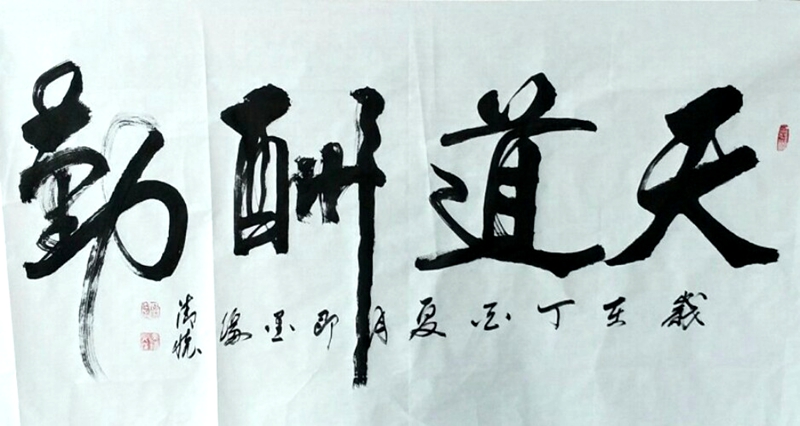 天道酬勤
岁在丁酉夏月即墨缘